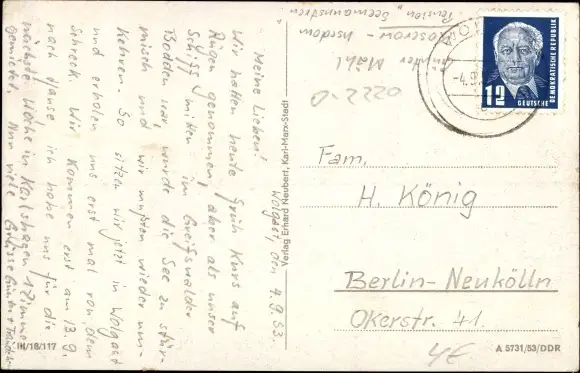 Wolgast, den 4.9.53.
Meine Lieben!
Wir hatten heute früh Kurs auf
Rügen genommen, aber als unser
Schiff mitten im Greifswalder
Bodden war wurde die See zu stür-
misch und wir mußten wieder um-
kehren. So sitzen wir jetzt in Wolgast
und erholen uns erst mal von dem
Schreck. Wir kommen erst am 13.9.
nach Hause ich habe uns für die
nächste Woche in Karlshagen 1 Zimmer
gemietet. Nun viele
Grüsse Günter +
III/18/117
Verlag Erhard Neubert, Karl-Marx-Stadt
Günter Mahl
Koserow - Usedom
Pension "Seemannstreu"
0222-0
12
DEUTSCHE
DEMOKRATISCHE REPUBLIK
-4.9.
Fam.
H. König
Berlin-Neukölln
Okerstr. 41.
4€
A 5731/53/DDR